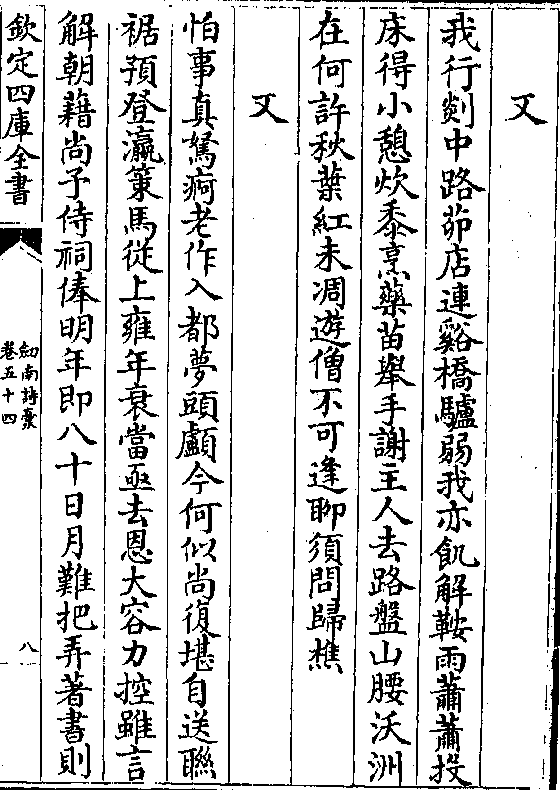 又
我行剡中路茆店連谿橋驢弱我亦飢解鞍雨蕭蕭投
床得小憩炊黍烹藥苗舉手謝主人去路盤山腰沃洲
在何許秋葉紅未凋遊僧不可逢聊須問歸樵
又
怕事真駑痾老作入都夢頭顱今何似尚復堪自送聮
裾預登瀛策馬從上雍年衰當亟去恩大容力控雖言
解朝藉尚子侍祠俸明年即八十日月難把弄著書則
欽定四庫全書
劒南詩稾
卷五十四
八